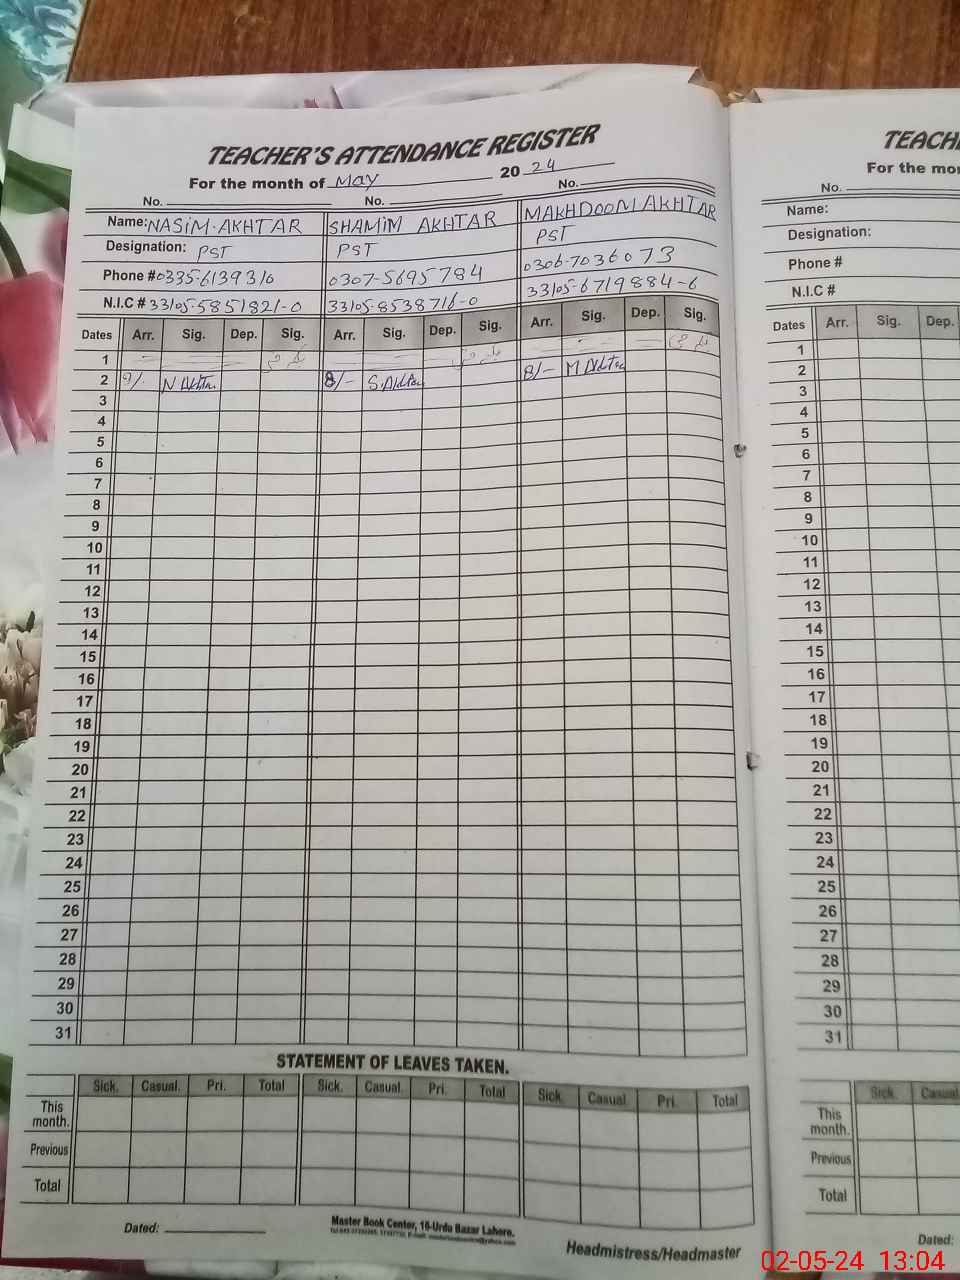 TEACHER'S ATTENDANCE REGISTER
For the month of May 2024
No. No. No.
Name: NASIM AKHTAR SHAMIM AKHTAR MAKHDOOM AKHTAR
Designation: PST PST PST
Phone # 0335-6139310 0307-5695784 0306-7036073
N.I.C # 33105-5851821-0 33105-8538716-0 33105-6719884-6
Dates Arr. Sig. Dep. Sig. Arr. Sig. Dep. Sig. Arr. Sig. Dep. Sig.
1
2 8/- N Akhtar 8/- S.Akhtar 8/- M Akhtar
3
4
5
6
7
8
9
10
11
12
13
14
15
16
17
18
19
20
21
22
23
24
25
26
27
28
29
30
31
STATEMENT OF LEAVES TAKEN.
Sick. Casual. Pri. Total Sick. Casual. Pri. Total Sick. Casual. Pri. Total
This month.
Previous
Total
Dated:
Master Book Center, 16-Urdu Bazar Lahore.
Headmistress/Headmaster
TEACH
For the mo
No.
Name:
Designation:
Phone #
N.I.C #
Dates Arr. Sig. Dep.
1
2
3
4
5
6
7
8
9
10
11
12
13
14
15
16
17
18
19
20
21
22
23
24
25
26
27
28
29
30
31
Sick. Casual
This month.
Previous
Total
Dated:
02-05-24 13:04